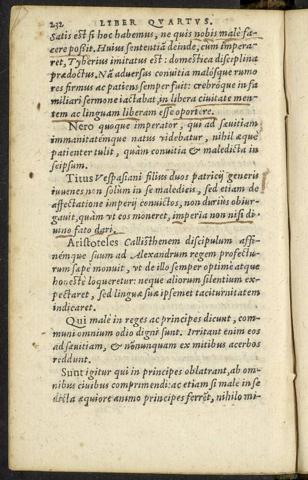 232 LIBER QVARTVS.
Satis est si hoc habemus, ne quis nobis malè fa-
cere possit. Huius sententiã deinde, cum impera-
ret, Tyberius imitatus est: domestica disciplina
prædoctus. Nã aduersus conuitia malósque rumo
res firmus ac patiens semper fuit: crebróque in fa
miliari sermone iactabat, in libera ciuitate men-
tem ac linguam liberam esse oportere.
Nero quoque imperator, qui ad sæuitiam
immanitatémque natus videbatur, nihil æquè
patienter tulit, quàm conuitia & maledicta in
seipsum.
Titus Vespasiani filius duos patricij generis
iuuenes non solùm in se maledicis, sed etiam de
affectatione imperij conuictos, non durius obiur-
gauit, quàm vt eos moneret, imperia non nisi di-
uino fato dari.
Aristoteles Callisthenem discipulum affi-
némque suum ad Alexandrum regem profectu-
rum sæpe monuit, vt de illo semper optimè atque
honestè loqueretur: neque aliorum silentium ex-
pectaret, sed lingua sua ipsemet taciturnitatem
indicaret.
Qui malè in reges ac principes dicunt, com-
muni omnium odio digni sunt. Irritant enim eos
ad sæuitiam, & nõnunquam ex mitibus acerbos
reddunt.
Sunt igitur qui in principes oblatrant, ab om-
nibus ciuibus comprimendi: ac etiam si malè in se
dicta æquiore animo principes ferẽt, nihilo mi-